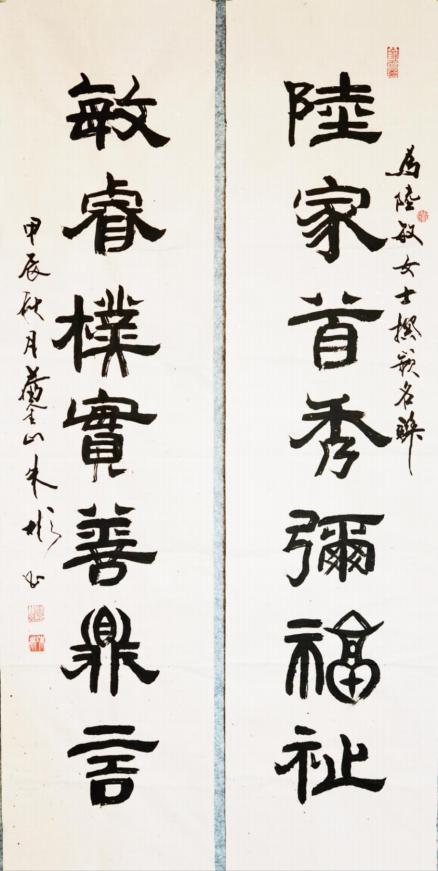 為陸敏女士撰嵌名聯
陸家首秀彌福祉
敏睿樸實善鼎言
甲辰秋月舊金山朱彬书